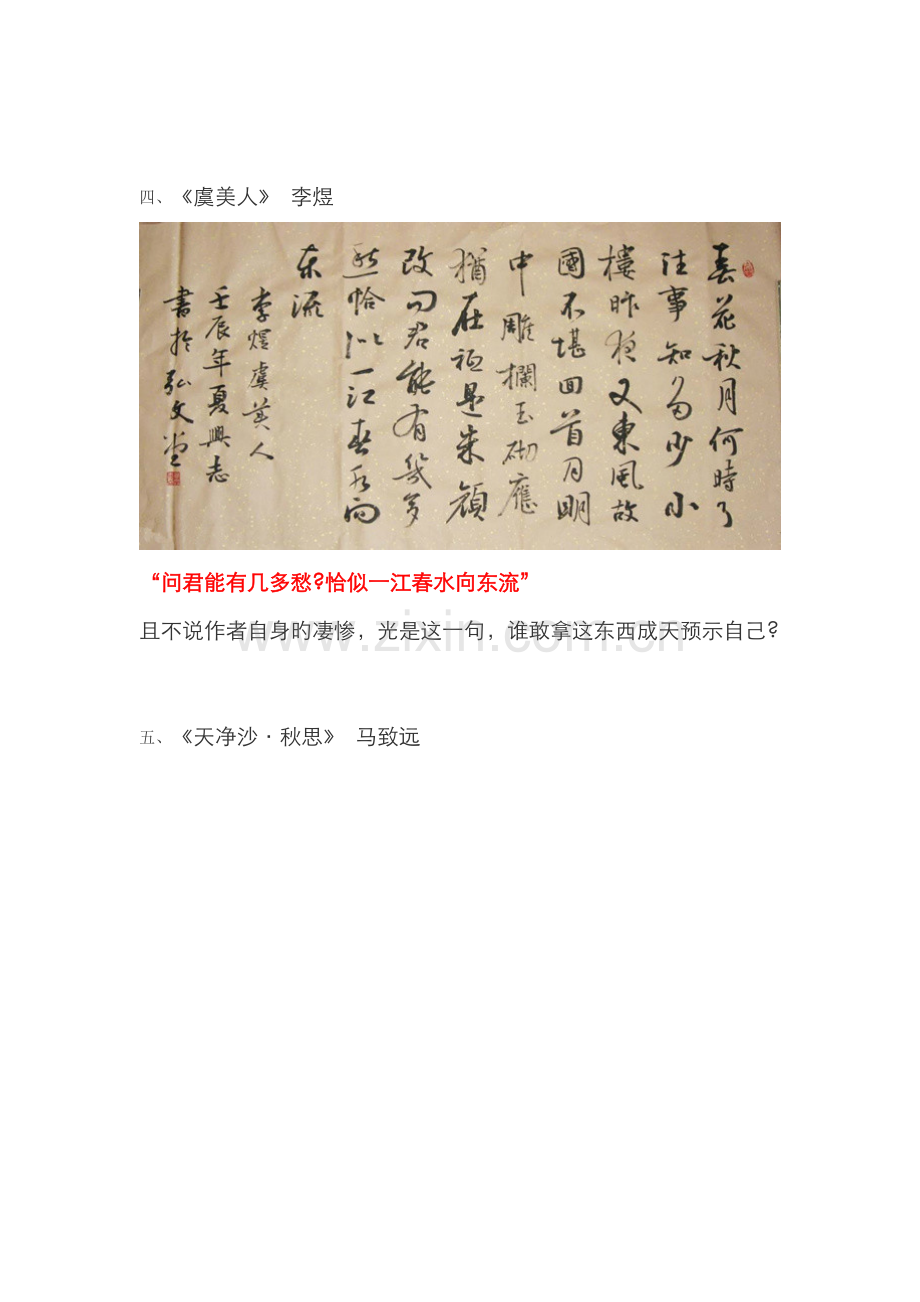 四、《虞美人》 李煜
春花秋月何時了
往事知多少小
樓昨夜又東風故
國不堪回首月明
中雕欄玉砌應
猶在祗是朱顏
改问君能有幾多
愁恰似一江春水向
东流
李煜虞美人
壬辰年夏興志
書於弘文堂
“问君能有几多愁?恰似一江春水向东流”
且不说作者自身旳凄惨，光是这一句，谁敢拿这东西成天预示自己?
www.zixin.com.cn
五、《天净沙·秋思》 马致远